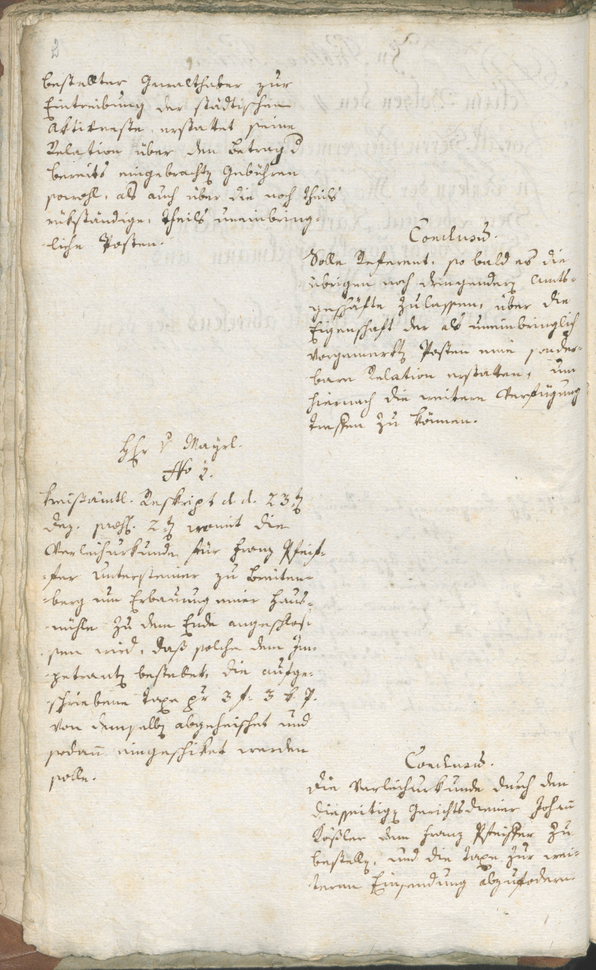 2
bestellter Gewalthaber zur
Eintreibung der städtischen
Aktivreste erstattet seine
Relation über den Betrag d
bereits eingebrachten Gebühren
sowohl, als auch über die noch theils
rükständige, theils uneinbring-
liche Posten.
Conclusum.
Solle Referent, so bald es die
übrigen noch dringendern Amts-
geschäfte zulassen, über die
Eigenschaft der als uneinbringlich
vorgemerkten Posten eine sonder-
bare Relation erstatten, um
hiernach die weitere Verfügung
treffen zu können.
Hr v Mayrl.
No 2.
Kreisämtl. Reskript d. d. 23ten
Dez. praes. 2ten womit die
Verleihurkunde für Franz Pfeif-
fer Untersteiner zu Breiten-
berg um Erbauung einer Haus-
mühle zu dem Ende angeschlos-
sen wird, daß solche dem Im-
petranten bestellet, die aufge-
schriebene Taxe pr 3 f. 3 x
von demselben abgeheischet und
sodann eingeschiket werden
solle.
Conclusum.
Die Verleihurkunde durch den
diesseitigen Gerichtsdiener Johann
Kößler dem Franz Pfeiffer zu
bestellen, und die Taxe zur wei-
teren Einsendung abzufodern